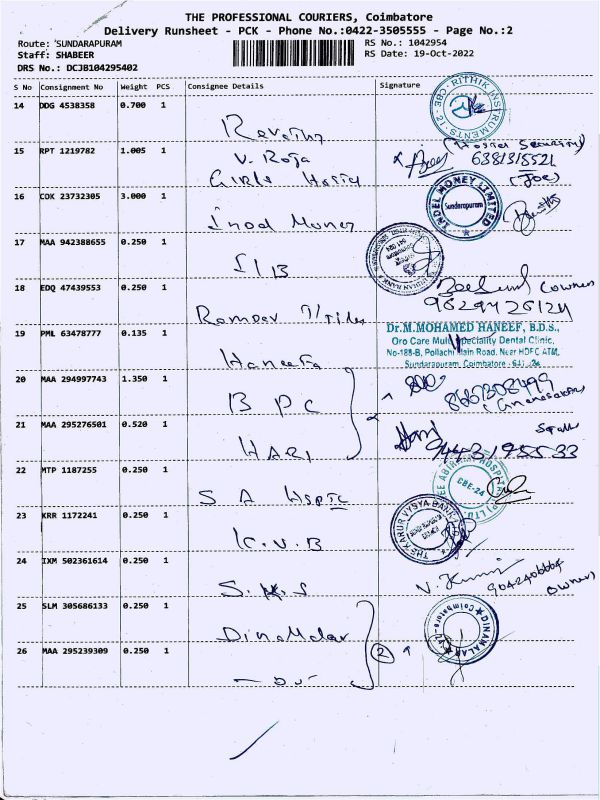 THE PROFESSIONAL COURIERS, Coimbatore
Delivery Runsheet - PCK - Phone No.:0422-3505555 - Page No.:2
Route: SUNDARAPURAM
RS No.: 1042954
Staff: SHABEER
RS Date: 19-Oct-2022
DRS No.: DCJB104295402
S No Consignment No Weight PCS Consignee Details Signature
14 DDG 4538358 0.700 1
RITHIK INSTRUMENTS CBE-21
15 RPT 1219782 1.005 1 V. Roja
Girls Hostel
6381315521
(Joe)
16 COK 23732305 3.000 1
INDEL MONEY LIMITED
Sundarapuram
17 MAA 942388655 0.250 1 SIB
18 EDQ 47439553 0.250 1 Ramdev Tiles
(owner)
19 PML 63478777 0.135 1 Haneefa
Dr.M.MOHAMED HANEEF, B.D.S.,
Oro Care Multi Speciality Dental Clinic,
No-188-B, Pollachi Main Road, Near HDFC ATM,
Sundarapuram, Coimbatore
20 MAA 294997743 1.350 1 BPC
8667308499
21 MAA 295276501 0.520 1 HARI
Hari
22 MTP 1187255 0.250 1 S A
CBE-24
23 KRR 1172241 0.250 1 K.V.B
THE KARUR VYSYA BANK
24 IXM 502361614 0.250 1
owner
25 SLM 305686133 0.250 1 DinaMalar
DINAMALAR Coimbatore
26 MAA 295239309 0.250 1
2